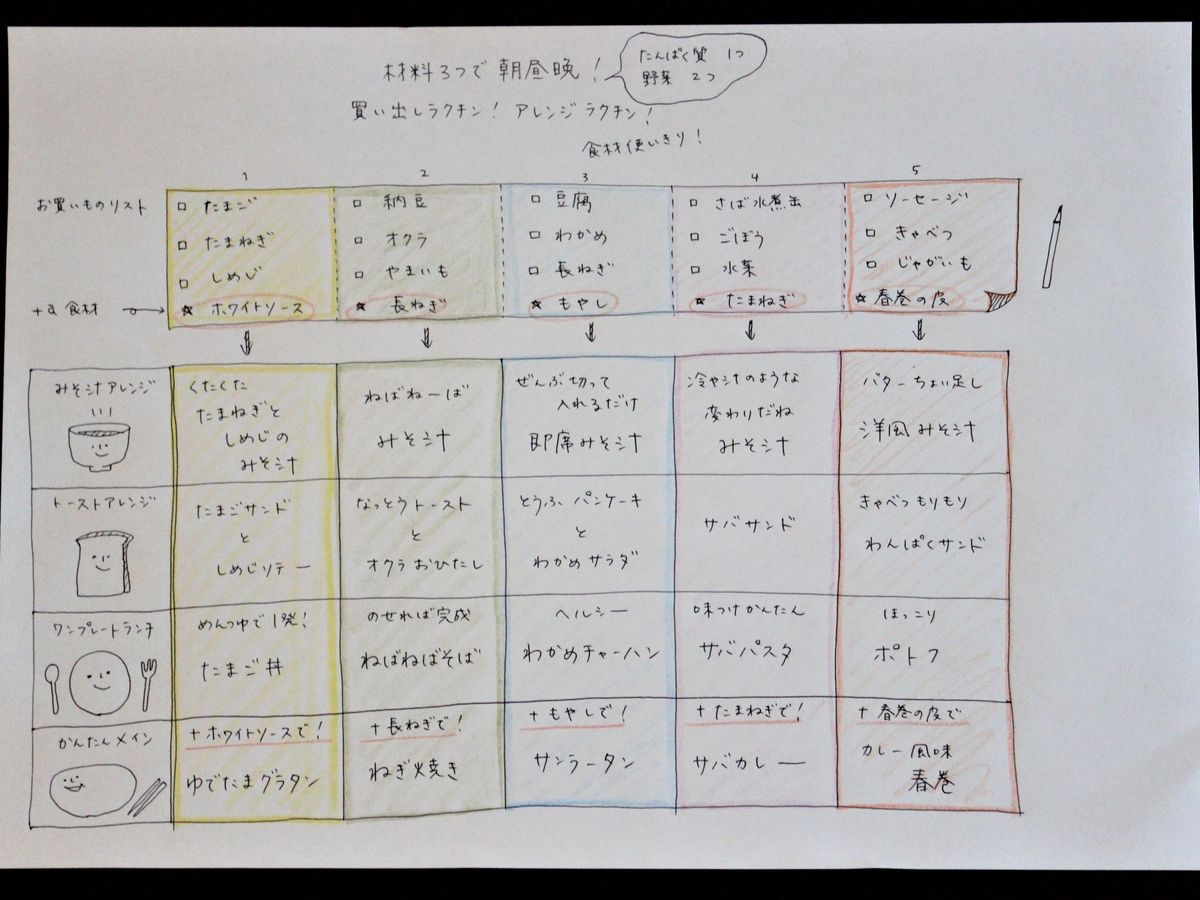 材料3つで 朝昼晩！
たんぱく質 1つ
野菜 2つ
買い出しラクチン！ アレンジラクチン！
食材使いきり！
1 2 3 4 5
お買いものリスト
□ たまご
□ たまねぎ
□ しめじ
☆ ホワイトソース
□ 納豆
□ オクラ
□ やまいも
☆ 長ねぎ
□ 豆腐
□ わかめ
□ 長ねぎ
☆ もやし
□ さば水煮缶
□ ごぼう
□ 水菜
☆ たまねぎ
□ ソーセージ
□ きゃべつ
□ じゃがいも
☆ 春巻の皮
+α 食材
みそ汁アレンジ
くたくた
たまねぎと
しめじの
みそ汁
ねばねーば
みそ汁
ぜんぶ切って
入れるだけ
即席みそ汁
冷や汁のような
変わりだね
みそ汁
バターちょい足し
洋風みそ汁
トーストアレンジ
たまごサンド
と
しめじソテー
なっとうトースト
と
オクラおひたし
とうふ パンケーキ
と
わかめサラダ
サバサンド
きゃべつもりもり
わんぱくサンド
ワンプレートランチ
めんつゆで1発！
たまご丼
のせれば完成
ねばねばそば
ヘルシー
わかめチャーハン
味つけかんたん
サバパスタ
ほっこり
ポトフ
かんたんメイン
+ホワイトソースで！
ゆでたまグラタン
+長ねぎで！
ねぎ焼き
+もやしで！
サンラータン
+たまねぎで！
サバカレー
+春巻の皮で
カレー風味
春巻